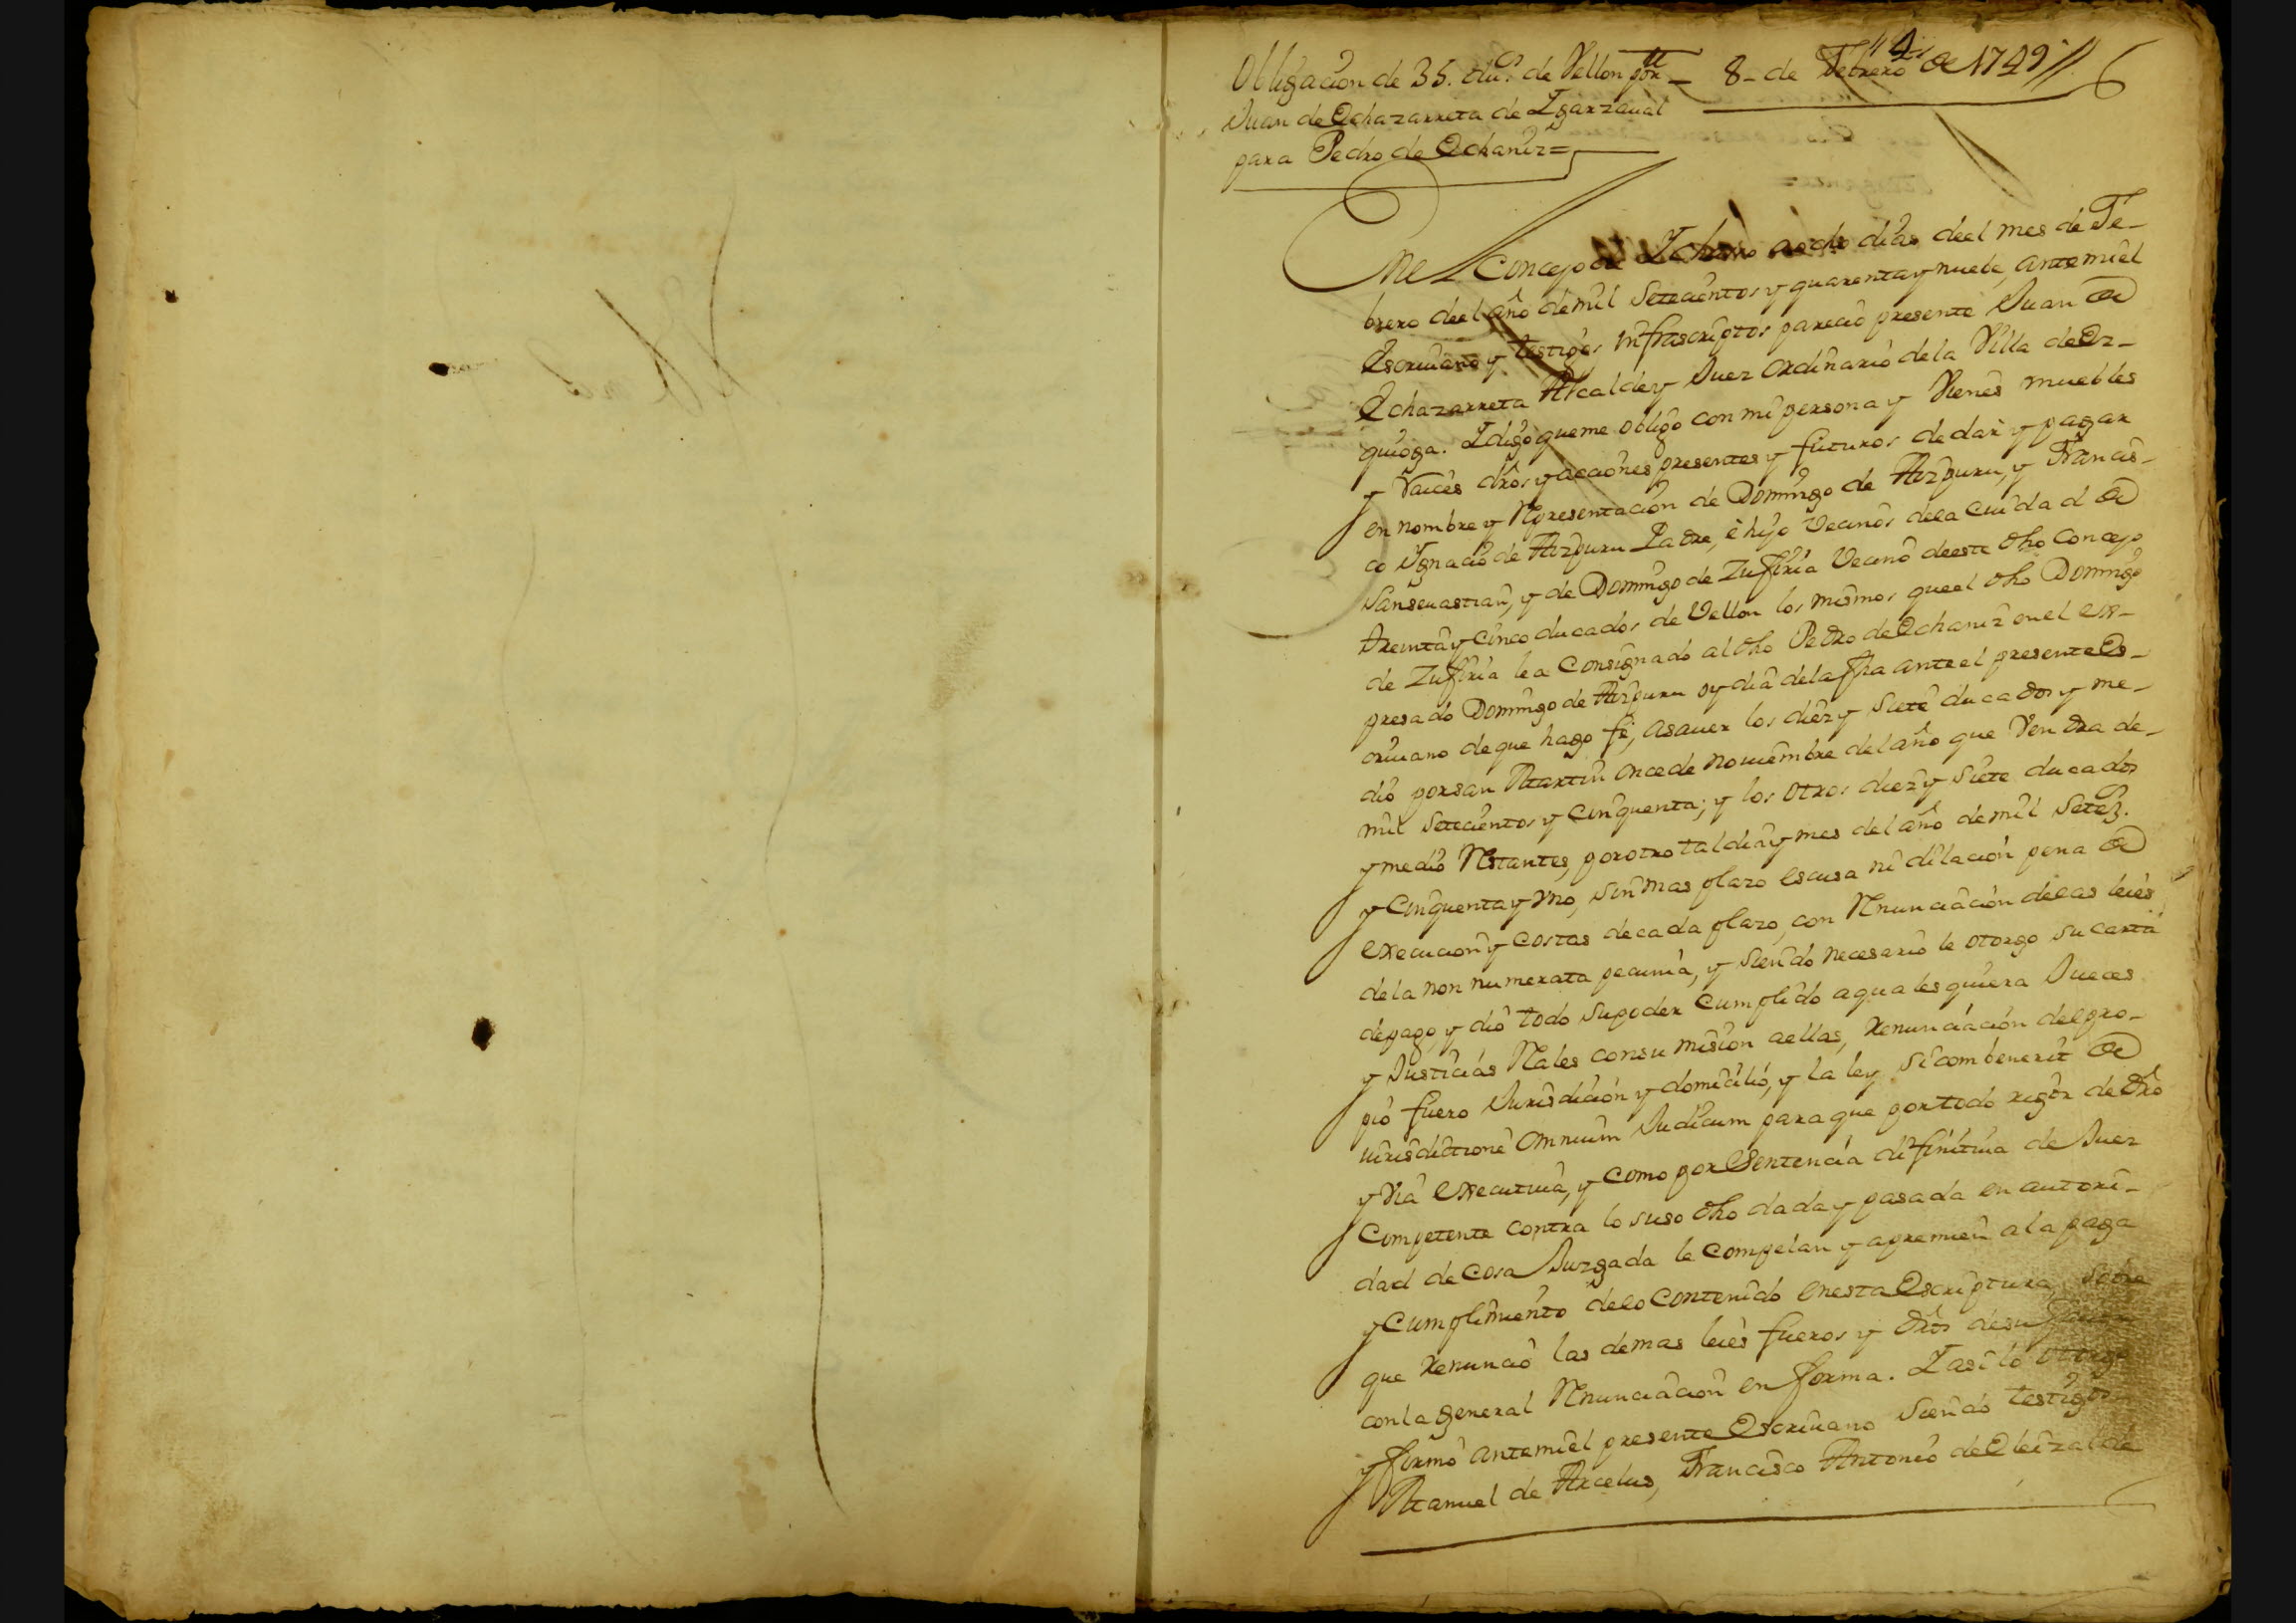 Obligacion de 35. du.s de Vellon por
Juan de Ochazarreta de Igarzaual
para Pedro de Ochaniz=
8- de Febrero de 1749//
En el Concejo de Ichaso a ocho dias de el mes de Fe-
brero de el año de mil Setecientos y quarenta y nuebe, ante mi el
Escriuano y testigos infrascriptos parecio presente Juan de
Ochazarreta Alcalde y Juez ordinario de la Villa de Or-
quioga. I digo que me obligo con mi persona y Vienes muebles
y Raices dros y acciones presentes y futuros de dar y pagar
en nombre y Representacion de Domingo de Aizpuru, y Francis-
co Ignacio de Aizpuru Padre, è hijo Vecinos de la Ciudad de
Sanseuastian, y de Domingo de Zufiria Vecino de este dho Concejo
treinta y Cinco ducados de Vellon los mismos que el dho Domingo
de Zufiria le a Consignado al dho Pedro de Ochaniz en el ex-
presado Domingo de Aizpuru oy dia de la fha ante el presente Es-
criuano de que hago fé, asauer los diez y Siete ducados y me-
dio por san Martin once de Nouiembre del año que Vendra de
mil Setecientos y Cinquenta; y los otros diez y Siete ducados
y medio Restantes, por otro tal dia y mes del año de mil Setez.
y Cinquenta y Vno, sin mas plazo escusa ni dilacion pena de
execucion y Costas de cada plazo, con Renunciacion de las leies
de la non numerata pecunia, y siendo necesario le otorgo su carta
de pago, y dió todo su poder Cumplido a qualesquiera Jueces
y Justicias Rales con su mision a ellas, Renunciación de el pro-
pio fuero Jurisdición y domicilio, y la ley Si combenerit de
Jurisdictione Omnium Judicum para que por todo rigor de dro
y Via executiua, y como por Sentencia difinitiua de Juez
Competente contra lo suso dho dada y pasada en autori-
dad de Cosa Juzgada le Compelan y apremien a la paga
y Cumplimiento de lo Contenido en esta Escriptura, Sobre
que Renunció las demas leies fueros y dros de su fauor
con la general Renunciacion en forma. I asi lo otorgo
y firmó ante mi el presente Escriuano Siendo testigos
Manuel de Arcelus, Francisco Antonio de Oleizalde